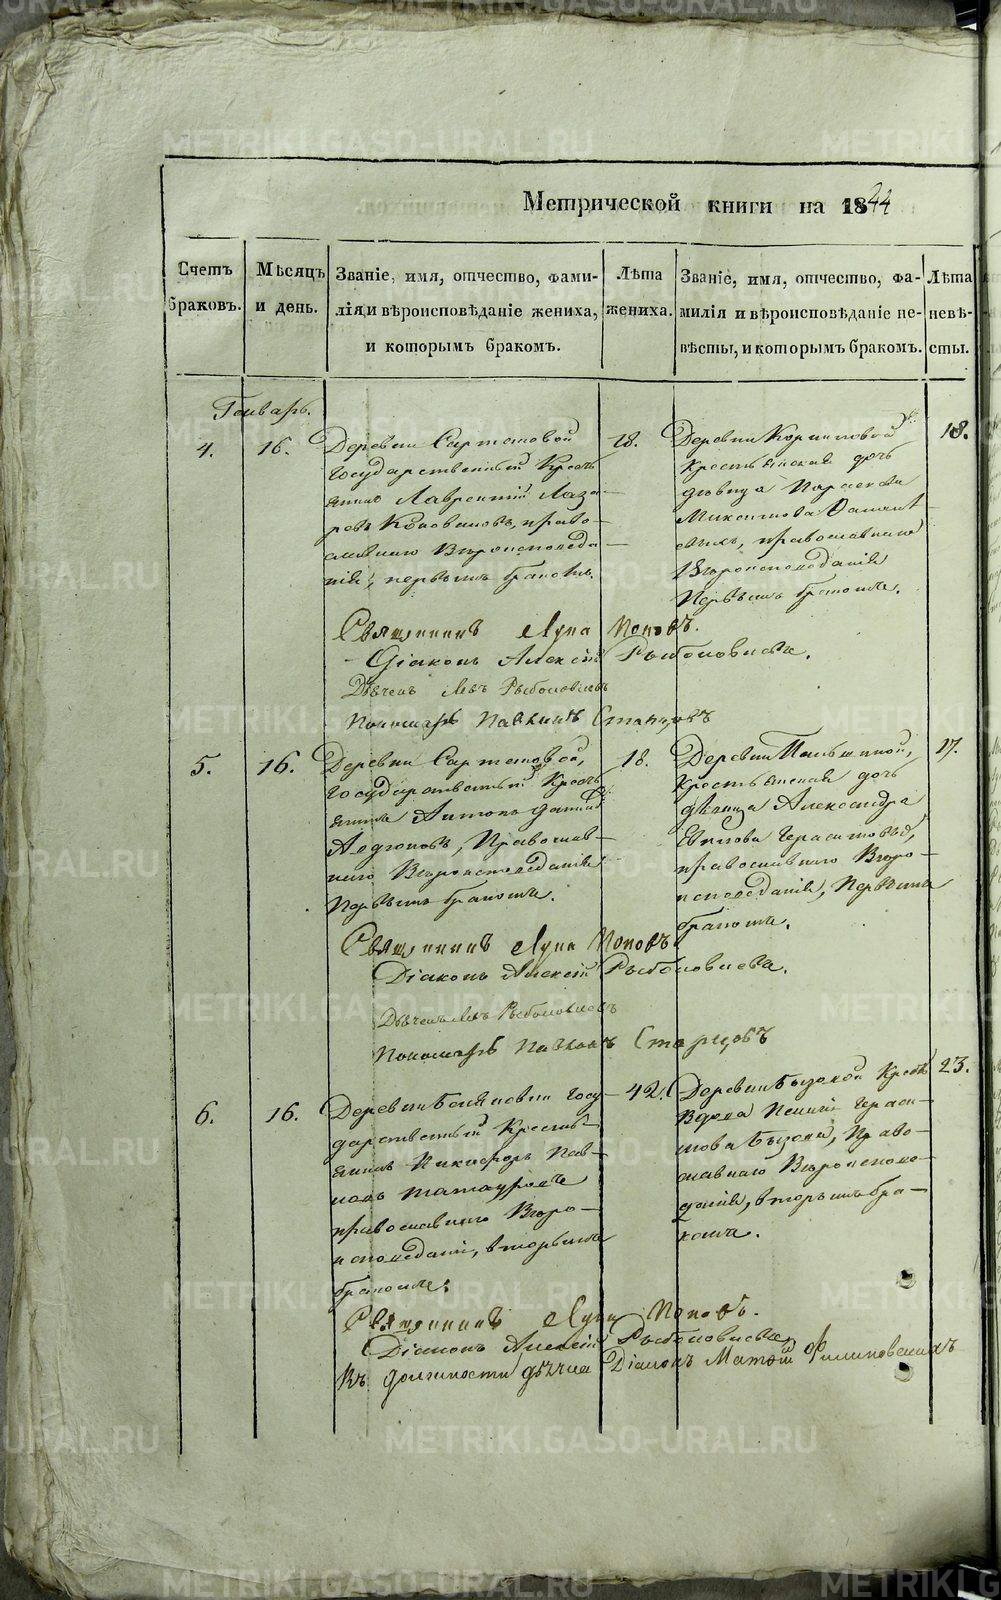 Метрической книги на 1844
Счетъ браковъ.
Мѣсяцъ и день.
Званіе, имя, отчество, фами-
лія, и вѣроисповѣданіе жениха,
и которымъ бракомъ.
Лѣта
жениха.
Званіе, имя, отчество, фа-
милія и вѣроисповѣданіе не-
вѣсты, и которымъ бракомъ.
Лѣта
невѣ-
сты.
Генварь.
4.
16.
Деревни
Государственный Кресть
янинъ Лаврентій Лаза
ревъ право-
славнаго Вѣроисповѣда
нія, первымъ бракомъ.
18.
Деревни
крестьянская дочь
дѣвица Параскева
Максимова
православнаго
Вѣроисповѣданія
Первымъ бракомъ.
18.
Священникъ Лука Поповъ.
Діаконъ Алексій
Дьячекъ Левъ
Пономарь Старцовъ
5.
16.
Деревни
государственный Кресть
янинъ Антонъ
Православ-
наго Вѣроисповѣданія
Первымъ бракомъ.
18.
Деревни
крестьянская дочь
дѣвица Александра
Герасимовыхъ,
православнаго Вѣро-
исповѣданія, Первымъ
бракомъ.
17.
Священникъ Лука Поповъ
Діаконъ Алексій
Дьячекъ Левъ
Пономарь Старцовъ
6.
16.
Деревни Госу-
дарственный Кресть-
янинъ Никифоръ Пав-
ловъ
православнаго Вѣро-
исповѣданія, вторымъ
бракомъ.
42.
Деревни Крест
Вдова Гераси-
мова Право-
славнаго Вѣроисповѣ-
данія, вторымъ бра-
комъ.
23.
Священникъ Лука Поповъ.
Діаконъ Алексій
Въ должности дьячка Діаконъ Матѳій Филиповскихъ
METRIKI.GASO-URAL.RU